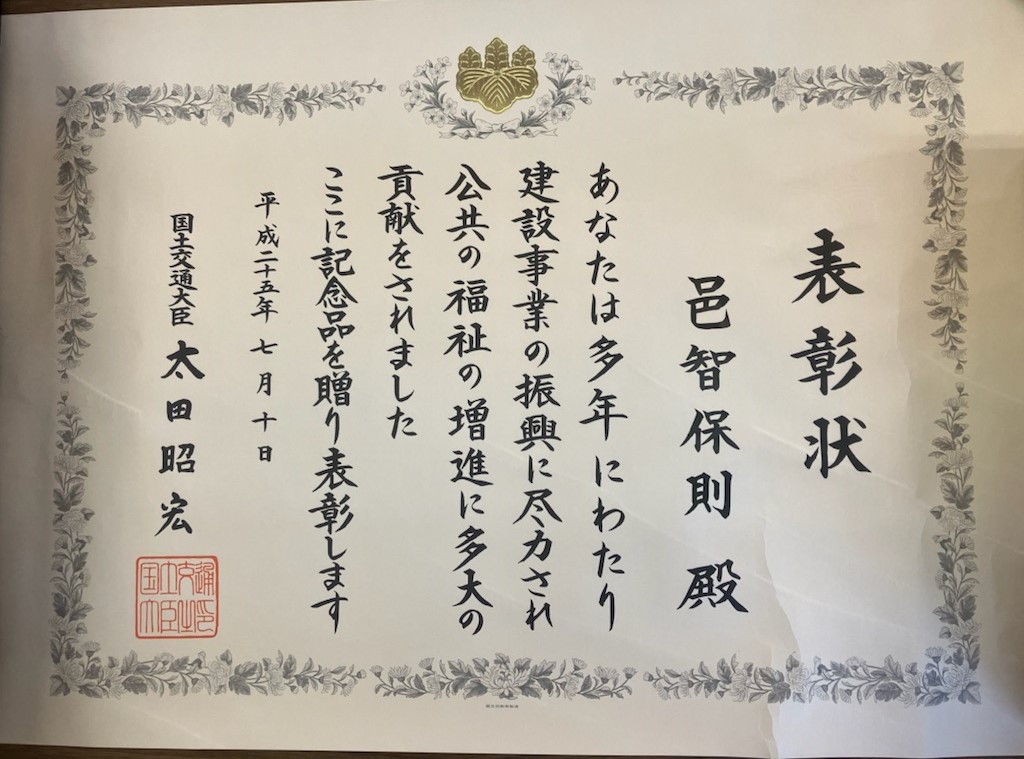 表彰状
邑智保則 殿
あなたは多年にわたり
建設事業の振興に尽力され
公共の福祉の増進に多大の
貢献をされました
ここに記念品を贈り表彰します
平成二十五年七月十日
国土交通大臣 太田昭宏
国土交通大臣之印